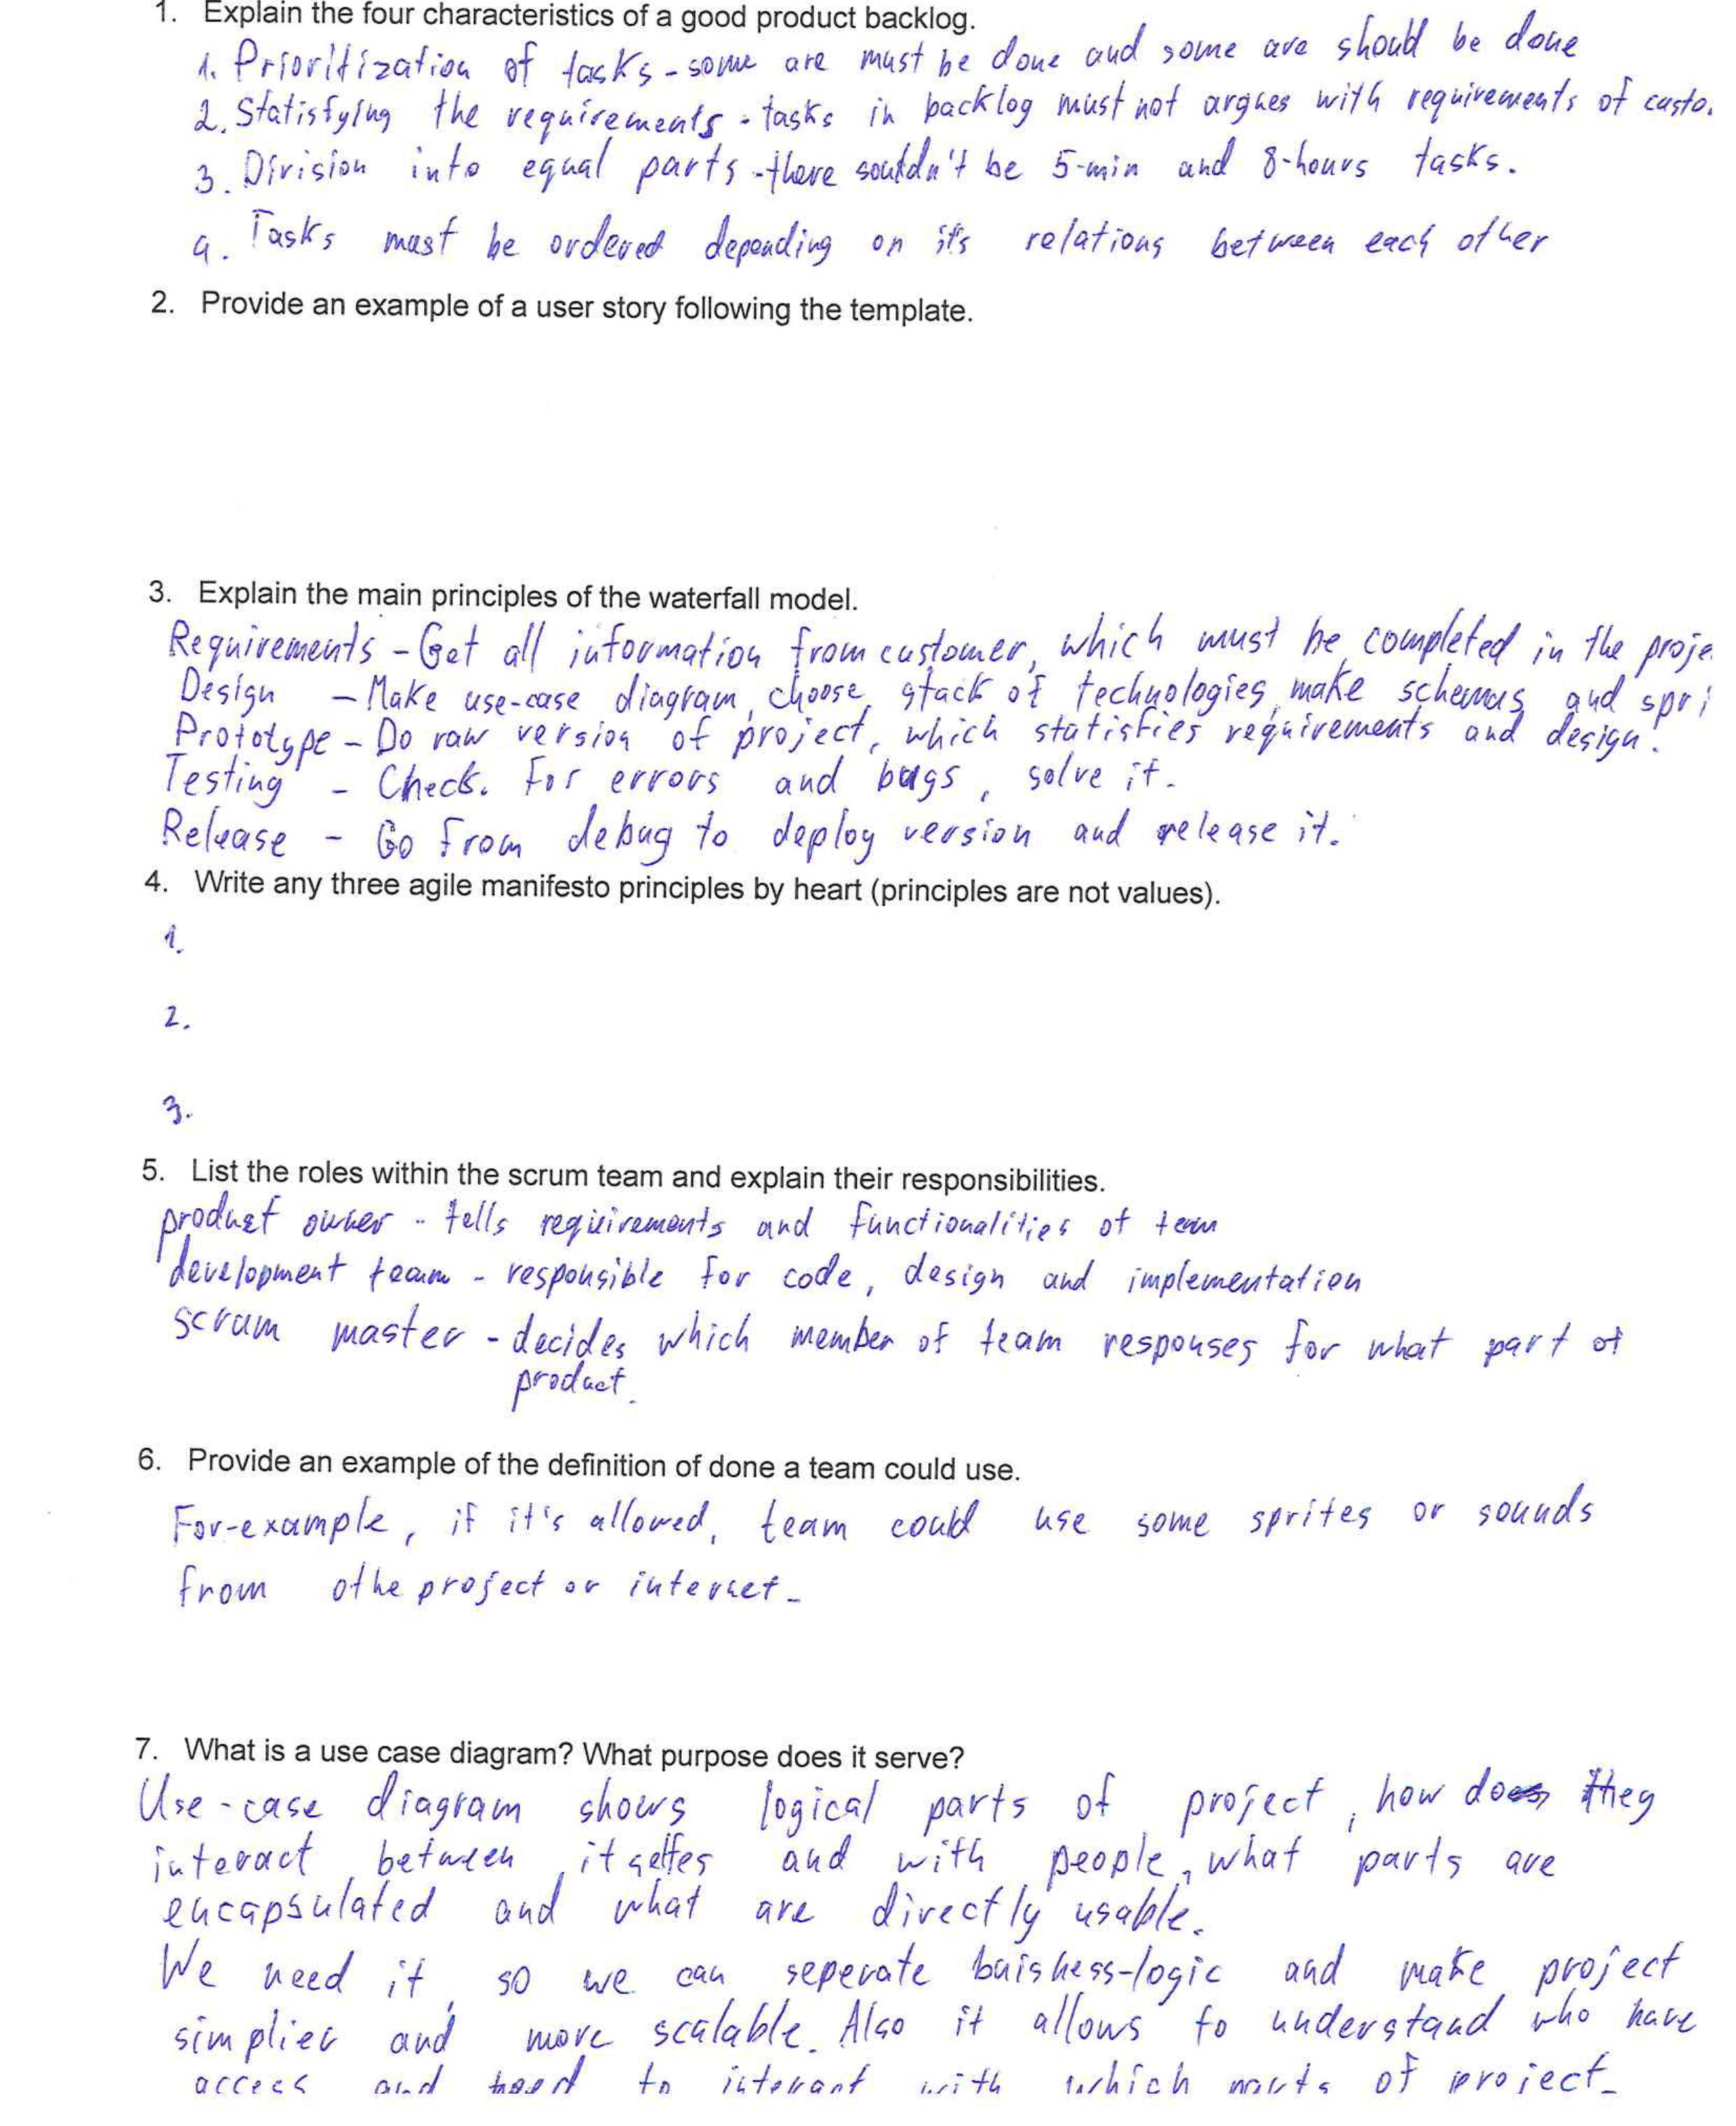 1. Explain the four characteristics of a good product backlog.
1. Prioritization of tasks - some are must be done and some are should be done
2. Statisfying the requirements - tasks in backlog must not argues with requirements of custo.
3. Division into equal parts - there souldn't be 5-min and 8-hours tasks.
4. Tasks must be ordered depending on it's relations between each other
2. Provide an example of a user story following the template.
3. Explain the main principles of the waterfall model.
Requirements - Get all information from customer, which must be completed in the proje
Design - Make use-case diagram, choose stack of technologies, make schemas and spri
Prototype - Do raw version of project, which statisfies requirements and design.
Testing - Check. For errors and bugs, solve it.
Release - Go from debug to deploy version and release it.
4. Write any three agile manifesto principles by heart (principles are not values).
1.
2.
3.
5. List the roles within the scrum team and explain their responsibilities.
product owner - tells requirements and functionalities of team
development team - responsible for code, design and implementation
scrum master - decides which member of team responses for what part of
product.
6. Provide an example of the definition of done a team could use.
For-example, if it's allowed, team could use some sprites or sounds
from othe project or internet.
7. What is a use case diagram? What purpose does it serve?
Use-case diagram shows logical parts of project, how do they
interact between itselfes and with people, what parts are
encapsulated and what are directly usable.
We need it, so we can seperate buisness-logic and make project
simplier and more scalable. Also it allows to understand who have
access and need to interant with which parts of project.